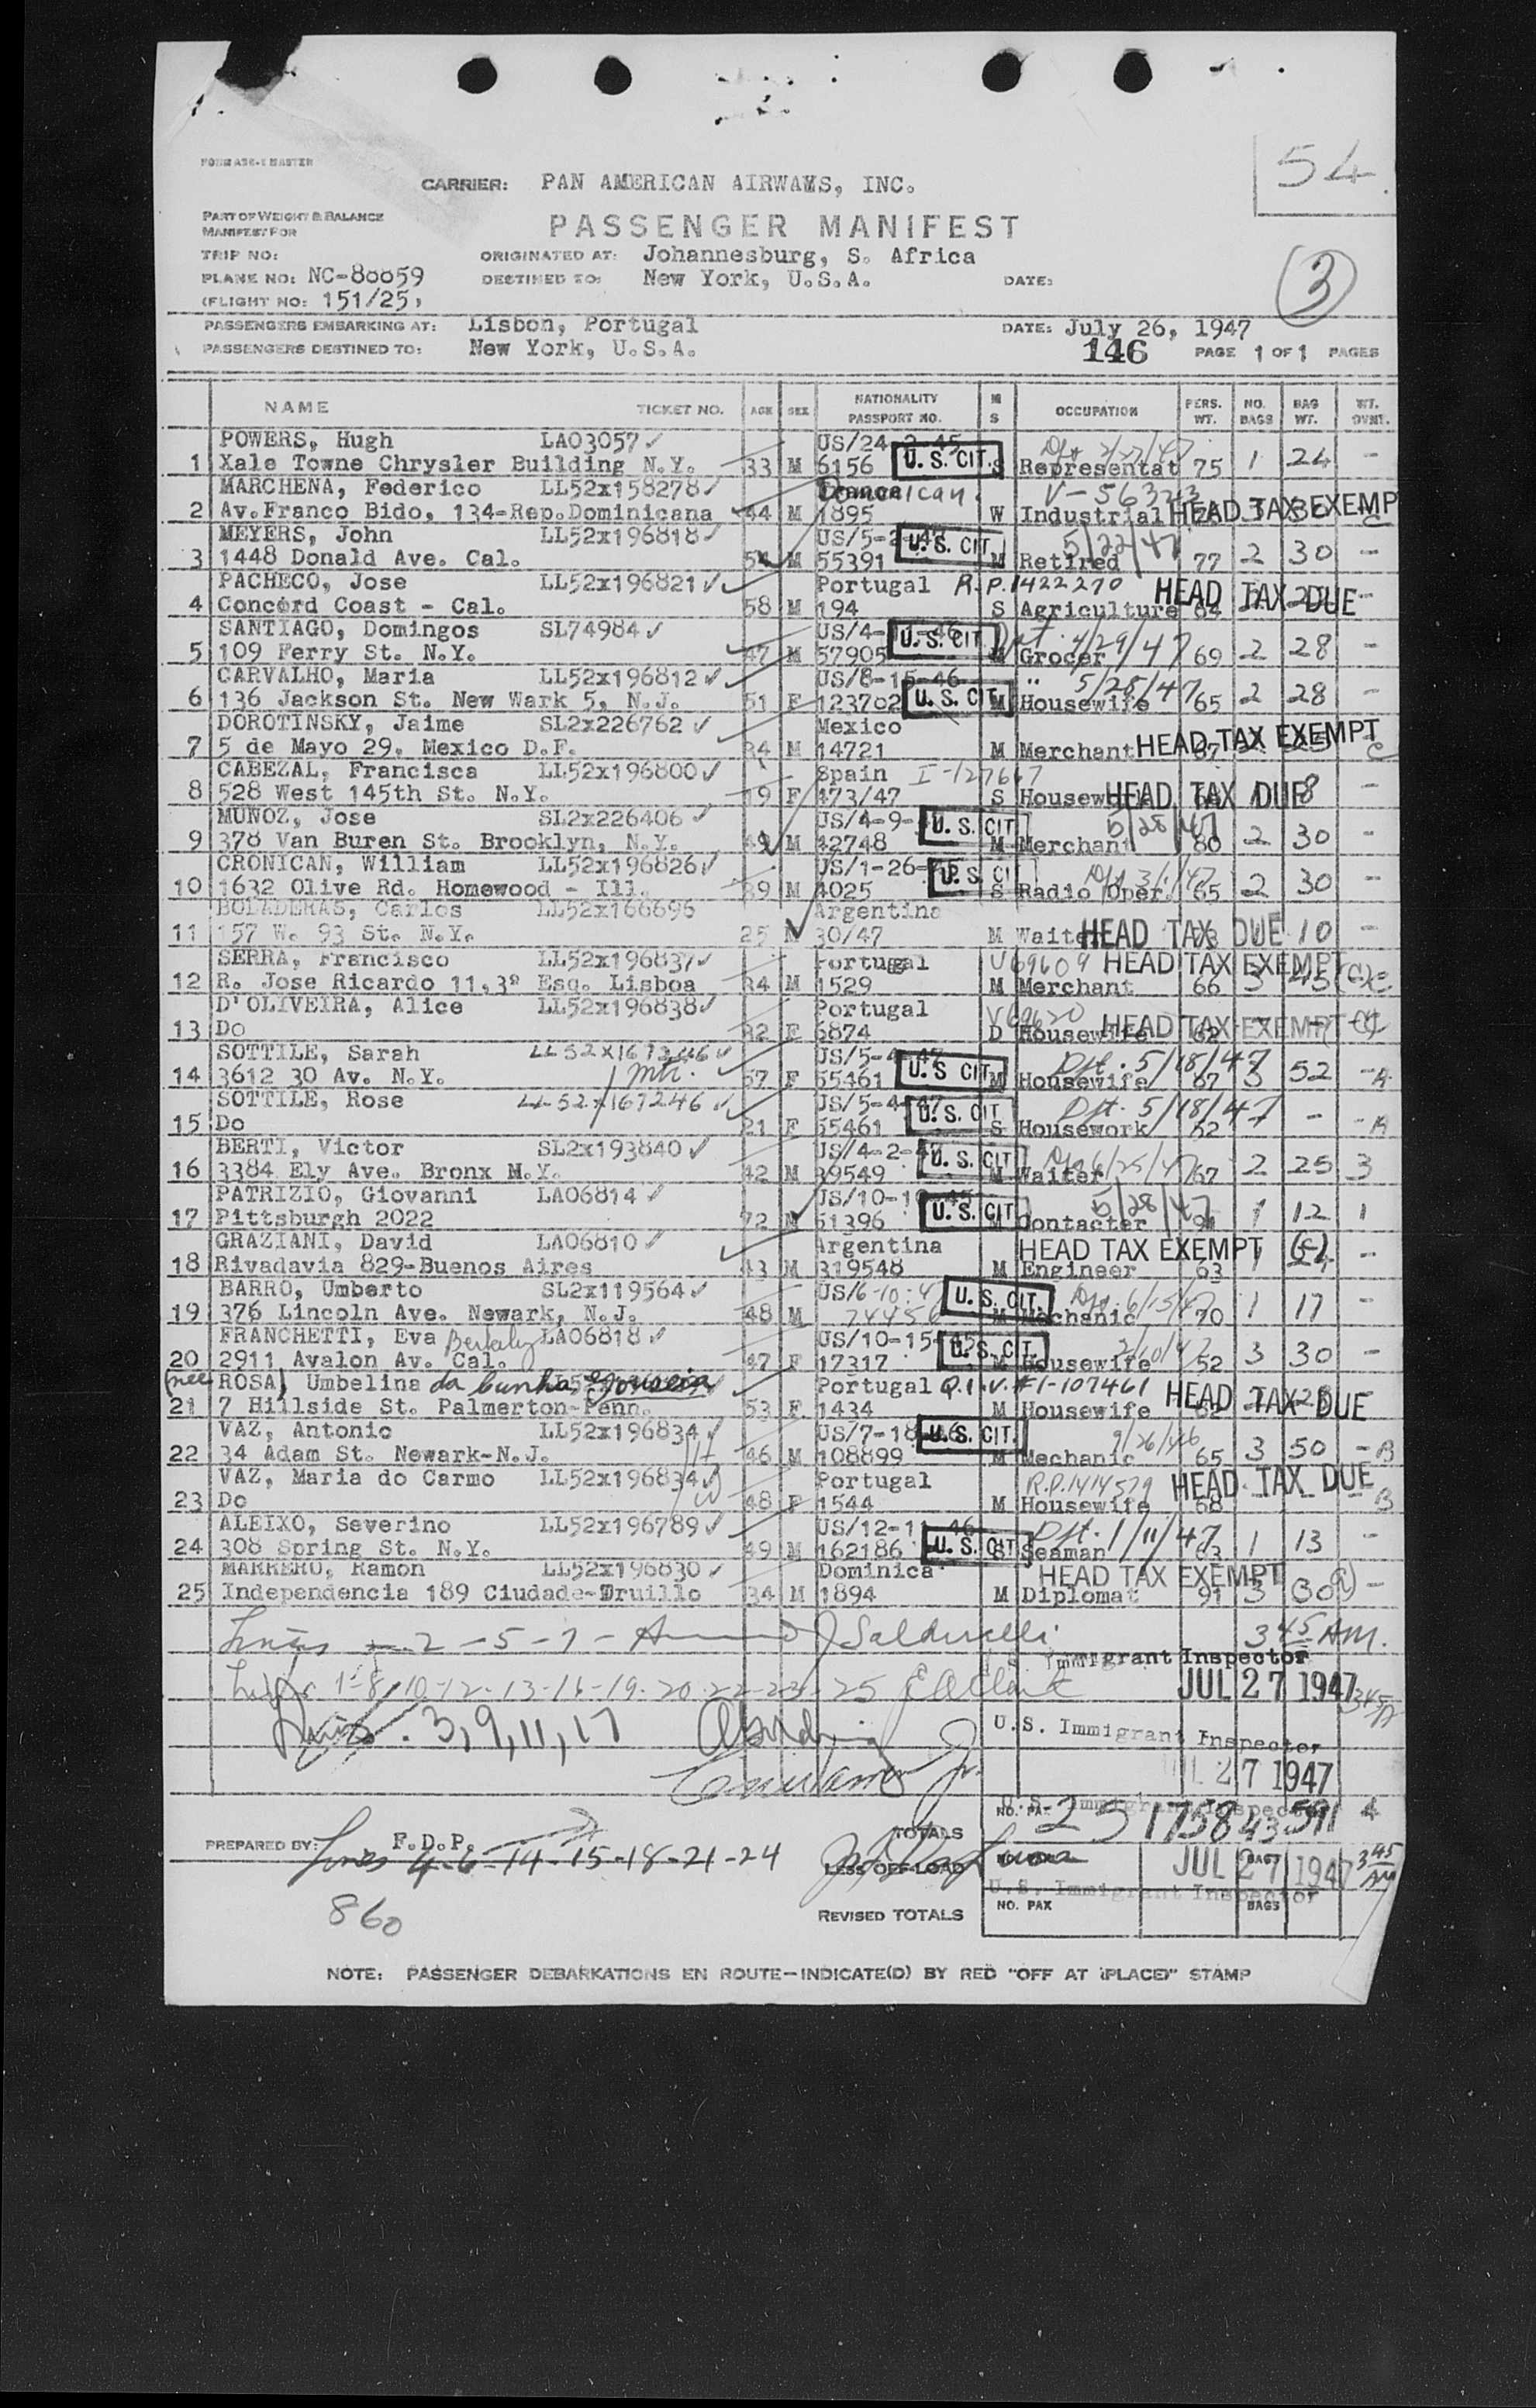 FORM A36-1 MASTER
54
CARRIER: PAN AMERICAN AIRWAYS, INC.
PART OF WEIGHT & BALANCE
MANIFEST FOR
PASSENGER MANIFEST
TRIP NO: ORIGINATED AT: Johannesburg, S. Africa
PLANE NO: NC-88859 DESTINED TO: New York, U.S.A. DATE: 3
(FLIGHT NO: 151/25)
PASSENGERS EMBARKING AT: Lisbon, Portugal DATE: July 26, 1947
PASSENGERS DESTINED TO: New York, U.S.A. 146 PAGE 1 OF 1 PAGES
NAME TICKET NO. AGE SEX NATIONALITY PASSPORT NO. M S OCCUPATION PERS. WT. NO. BAGS BAG WT. WT. OVNT.
POWERS, Hugh LA03057 US/24-2-45
1 Xale Towne Chrysler Building N.Y. 33 M 6156 U.S. CIT. S Representat 75 1 24 -
MARCHENA, Federico LL52x158278 Dominican V-56323
2 Av.Franco Bido, 134-Rep.Dominicana 44 M 1895 W Industrial HEAD TAX EXEMP
MEYERS, John LL52x196818 US/5-2- 5/22/47
3 1448 Donald Ave. Cal. M 55391 U.S. CIT M Retired 77 2 30 -
PACHECO, Jose LL52x196821 Portugal R.P.1422270 HEAD TAX DUE
4 Concord Coast - Cal. 58 M 194 S Agriculture 64 -
SANTIAGO, Domingos SL74984 US/4- -46 4/29/47
5 109 Ferry St. N.Y. 47 M 57905 U.S. CIT M Grocer 69 2 28 -
CARVALHO, Maria LL52x196812 US/8-15-46 " 5/28/47
6 136 Jackson St. New Wark 5, N.J. 51 F 123702 U.S. CIT M Housewife 65 2 28 -
DOROTINSKY, Jaime SL2x226762 Mexico
7 5 de Mayo 29. Mexico D.F. 34 M 14721 M Merchant HEAD TAX EXEMPT C
CABEZAL, Francisca LL52x196800 Spain I-127667
8 528 West 145th St. N.Y. 19 F 473/47 S Housew HEAD TAX DUE 8 -
MUNOZ, Jose SL2x226406 US/4-9- 5/28/47
9 378 Van Buren St. Brooklyn, N.Y. 49 M 42748 U.S. CIT M Merchant 80 2 30 -
CRONICAN, William LL52x196826 US/1-26-
10 1632 Olive Rd. Homewood - Ill. 39 M 4025 U.S. CI S Radio Oper. 65 2 30 -
BOLADERAS, Carlos LL52x166695 Argentina
11 157 W. 93 St. N.Y. 25 M 30/47 M Waiter HEAD TAX DUE 10 -
SERRA, Francisco LL52x196837 Portugal V69609 HEAD TAX EXEMPT
12 R. Jose Ricardo 11,3º Esq. Lisboa 34 M 1529 M Merchant 66 3 45 (C)
D'OLIVEIRA, Alice LL52x196838 Portugal V69620 HEAD TAX EXEMPT
13 Do 32 F 6874 D Housewife 62
SOTTILE, Sarah LL52x167346 US/5-4-47 Dft. 5/18/47
14 3612 30 Av. N.Y. 57 F 55461 U.S CIT M Housewife 67 3 52 -A
SOTTILE, Rose LL52x167246 US/5-4-47 Dft. 5/18/47
15 Do 21 F 55461 U.S. CIT S Housework 52 - -A
BERTI, Victor SL2x193840 US/4-2-47 6/25/47
16 3384 Ely Ave. Bronx N.Y. 42 M 39549 U.S. CIT M Waiter 67 2 25 3
PATRIZIO, Giovanni LA06814 US/10-10-45 5/28/47
17 Pittsburgh 2022 72 M 51396 U.S. CIT M Contacter 1 12 1
GRAZIANI, David LA06810 Argentina HEAD TAX EXEMPT
18 Rivadavia 829-Buenos Aires 43 M 319548 M Engineer 63 -
BARRO, Umberto SL2x119564 US/6-10-4
19 376 Lincoln Ave. Newark, N.J. 48 M 74456 U.S. CIT. M Mechanic 70 1 17 -
FRANCHETTI, Eva LA06818 US/10-15-45
20 2911 Avalon Av. Cal. 47 F 17317 U.S. CIT. Housewife 52 3 30 -
(nee ROSA) Umbelina da Cunha Portugal Q.I.V.#1-107461 HEAD TAX DUE
21 7 Hillside St. Palmerton-Penn. 53 F 1434 M Housewife 62
VAZ, Antonio LL52x196834 US/7-18-46 9/26/46
22 34 Adam St. Newark-N.J. H 46 M 108899 U.S. CIT. M Mechanic 65 3 50 -B
VAZ, Maria do Carmo LL52x196834 Portugal R.P.1414579 HEAD TAX DUE
23 Do W 48 F 1544 M Housewife 68 -B
ALEIXO, Severino LL52x196789 US/12-11-46 Dft. 1/11/47
24 308 Spring St. N.Y. 49 M 162186 U.S. CIT S Seaman 63 1 13 -
MARRERO, Ramon LL52x196830 Dominica HEAD TAX EXEMPT
25 Independencia 189 Ciudade-Truillo 34 M 1894 M Diplomat 91 3 30 -
Lines 2-5-7- 345 AM.
U.S. Immigrant Inspector
1-8-10-12-13-16-19-20-22-23-25 JUL 27 1947
Lines. 3,9,11,17
U.S. Immigrant Inspector
JUL 27 1947
U.S. Immigrant Inspector
TOTALS NO. PAX 25 1758 43 591 4
PREPARED BY: F.D.P.
Lines 4-6-14-15-18-21-24 LESS OFF-LOAD JUL 27 1947 345 AM
U.S. Immigrant Inspector
860
REVISED TOTALS NO. PAX BAGS
NOTE: PASSENGER DEBARKATIONS EN ROUTE—INDICATE(D) BY RED "OFF AT (PLACE)" STAMP